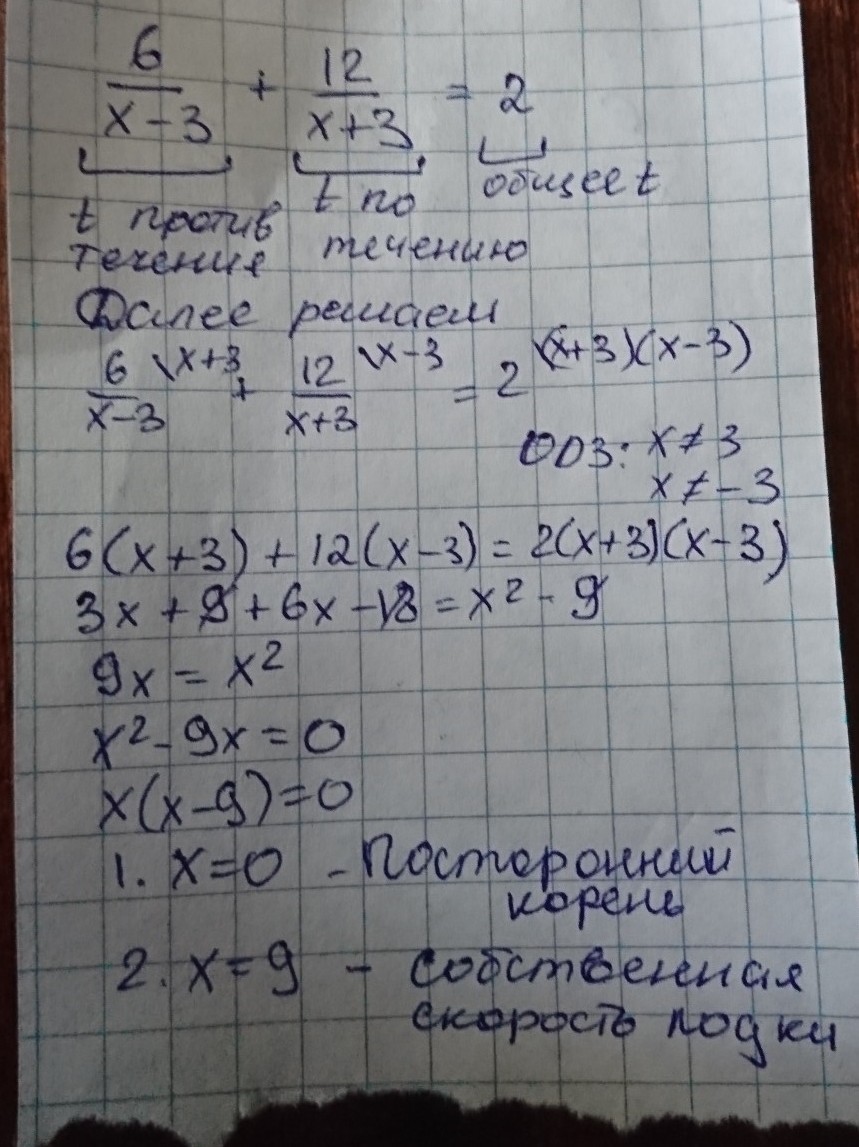 6/(x-3) + 12/(x+3) = 2
t против течения t по течению общее t
Далее решаем
6/(x-3) \x+3 + 12/(x+3) \x-3 = 2 \(x+3)(x-3)
ОДЗ: x ≠ 3
x ≠ -3
6(x+3) + 12(x-3) = 2(x+3)(x-3)
3x + 9 + 6x - 18 = x² - 9
9x = x²
x² - 9x = 0
x(x-9) = 0
1. x = 0 - Посторонний
корень
2. x = 9 - собственная
скорость лодки